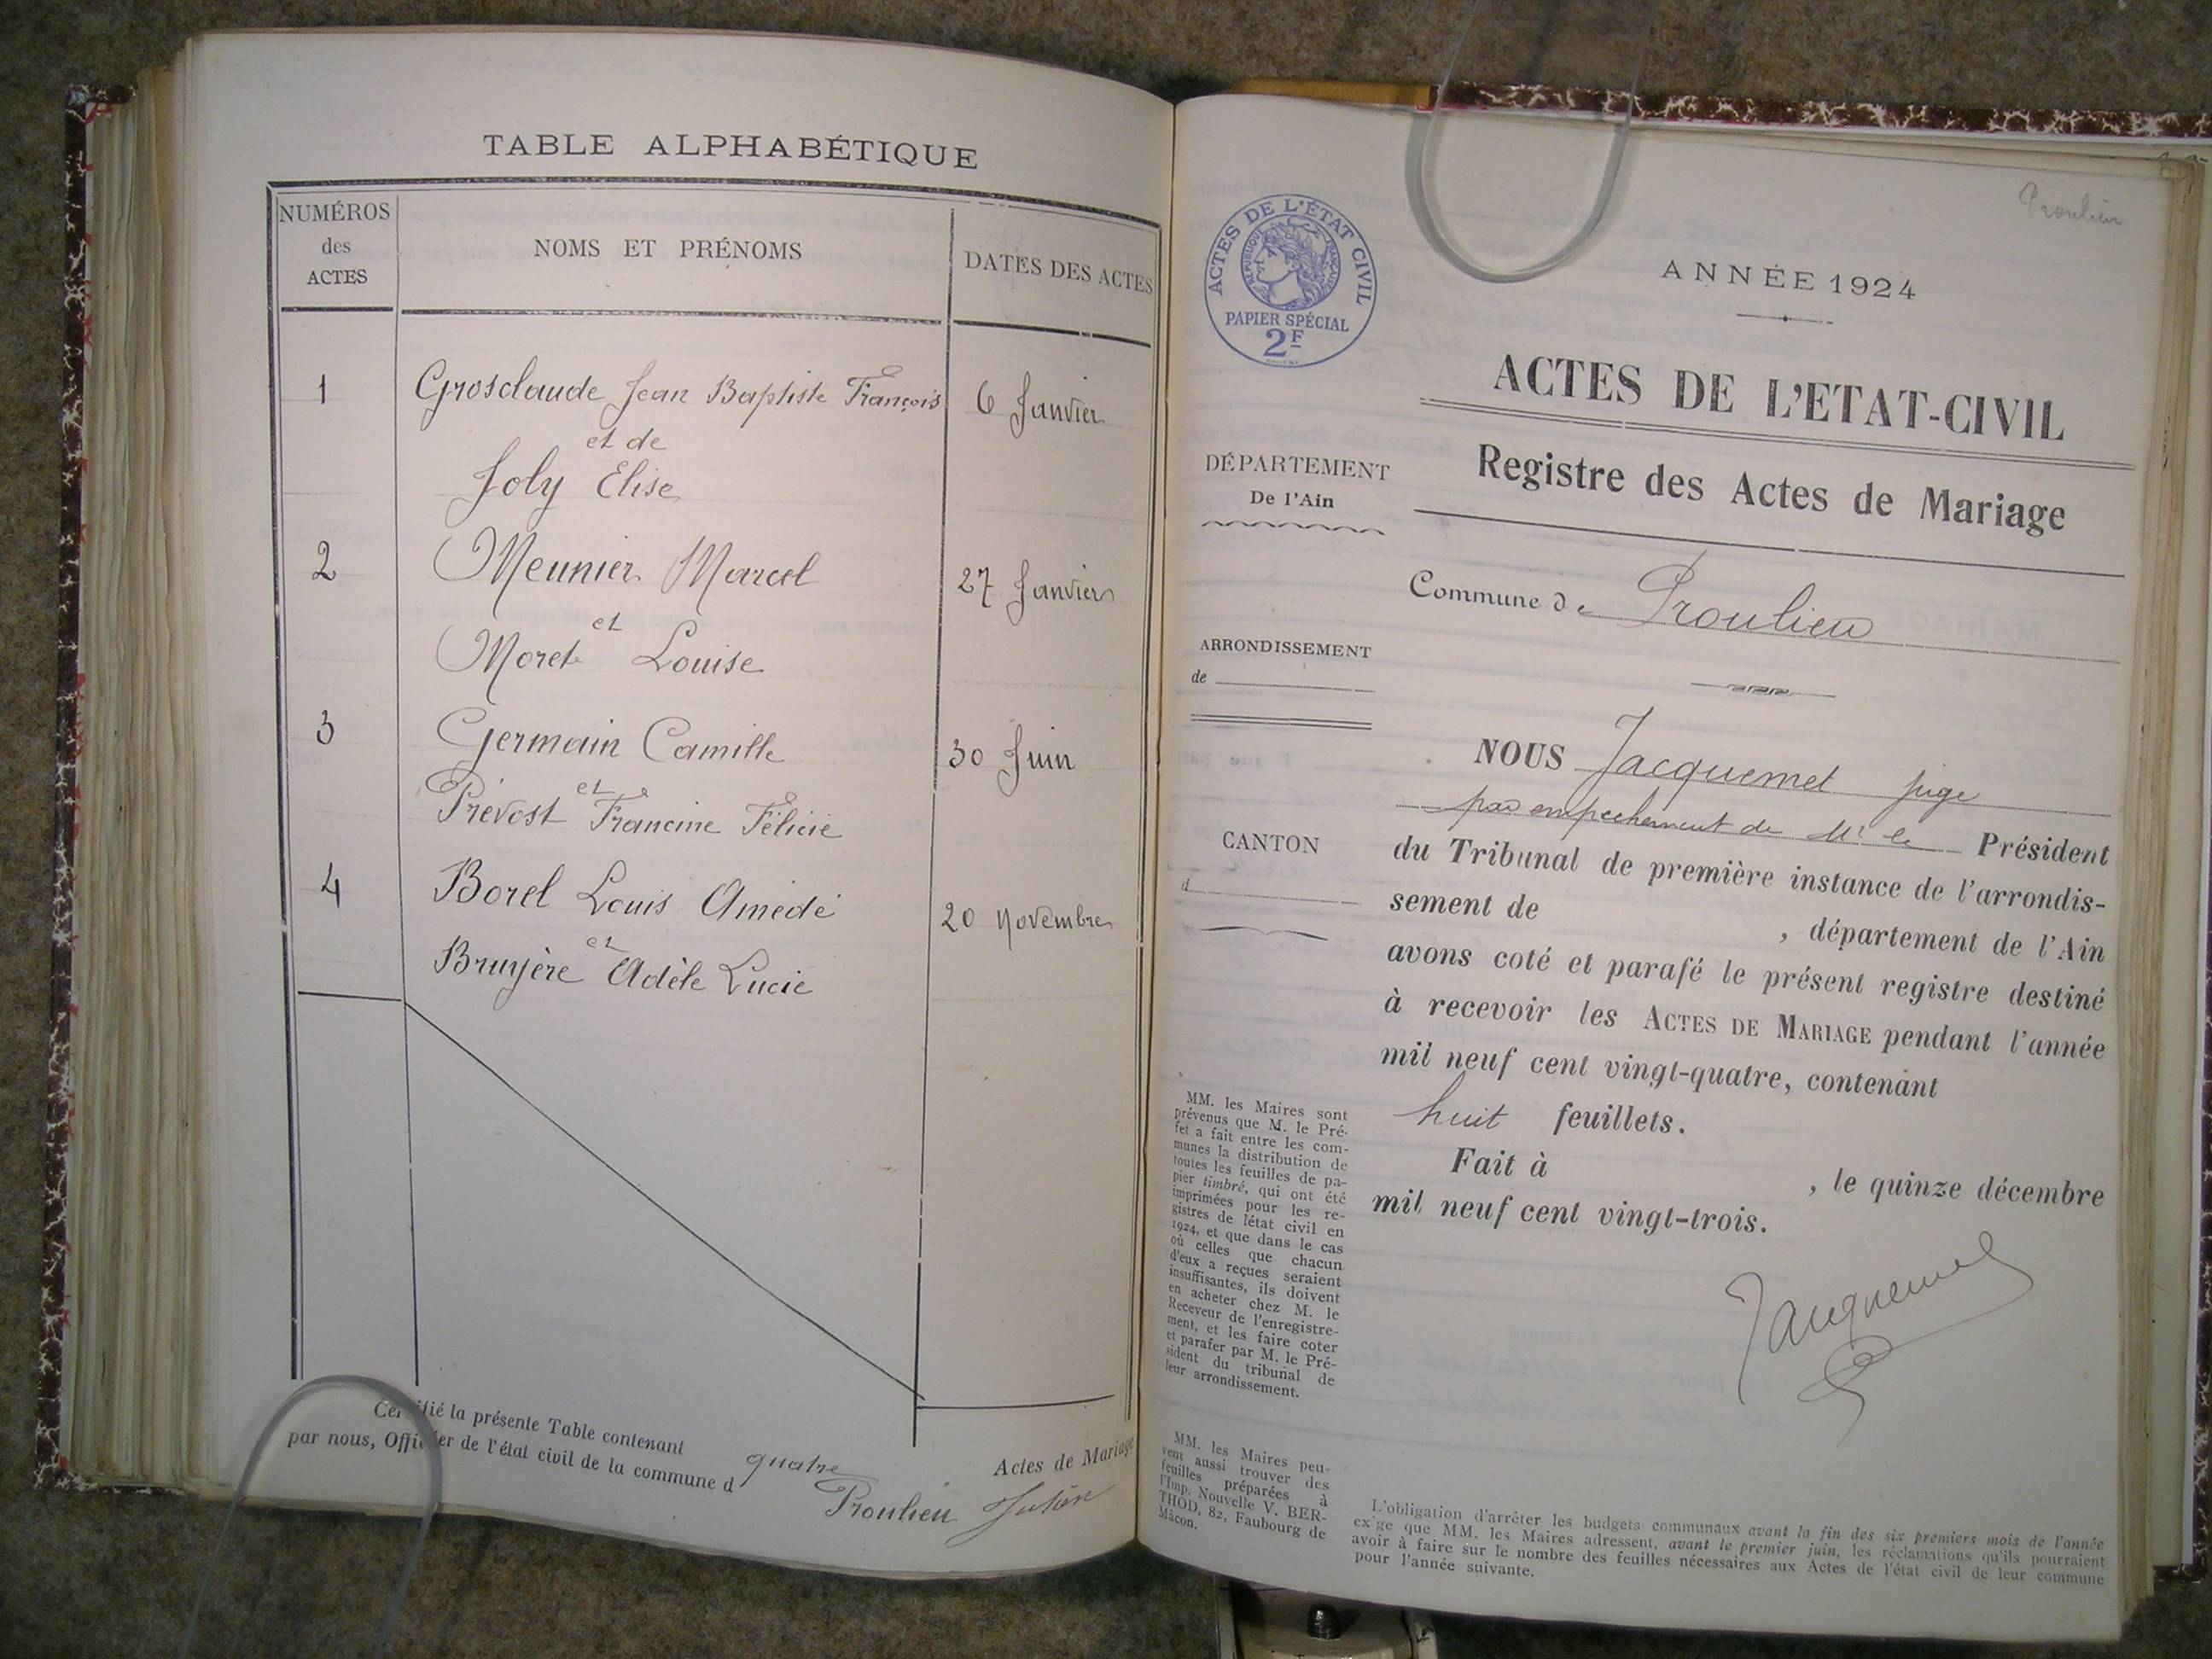 TABLE ALPHABÉTIQUE
NUMÉROS
des
ACTES
NOMS ET PRÉNOMS
DATES DES ACTES
1
Grosclaude Jean Baptiste François
6 Janvier
et de
Joly Elise
2
Meunier Marcel
27 Janvier
et
Louise
3
Germain Camille
30 Juin
et
Prévost Francine Félicie
4
Borel Louis Amédé
20 novembre
et
Bruyère Adèle Lucie
Certifié la présente Table contenant quatre Actes de Mariage
par nous, Officier de l'état civil de la commune d Proulieu
Proulieu
ACTES DE L'ÉTAT CIVIL
RÉPUBLIQUE FRANÇAISE
PAPIER SPÉCIAL
2F
ANNÉE 1924
ACTES DE L'ETAT-CIVIL
Registre des Actes de Mariage
DÉPARTEMENT
De l'Ain
Commune de Proulieu
ARRONDISSEMENT
de
CANTON
d
NOUS Jacquemet juge
par empechement de Mr le Président
du Tribunal de première instance de l'arrondis-
sement de , département de l'Ain
avons coté et parafé le présent registre destiné
à recevoir les ACTES DE MARIAGE pendant l'année
mil neuf cent vingt-quatre, contenant
huit feuillets.
Fait à , le quinze décembre
mil neuf cent vingt-trois.
Jacquemet
MM. les Maires sont
prévenus que M. le Pré-
fet a fait entre les com-
munes la distribution de
toutes les feuilles de pa-
pier timbré, qui ont été
imprimées pour les re-
gistres de l'état civil en
1924, et que dans le cas
où celles que chacun
d'eux a reçues seraient
insuffisantes, ils doivent
en acheter chez M. le
Receveur de l'enregistre-
ment, et les faire coter
et parafer par M. le Pré-
sident du tribunal de
leur arrondissement.
MM. les Maires peu-
vent aussi trouver des
feuilles préparées à
l'Imp. Nouvelle V. BER-
THOD, 82, Faubourg de
Mâcon.
L'obligation d'arrêter les budgets communaux avant la fin des six premiers mois de l'année
exige que MM. les Maires adressent, avant le premier juin, les réclamations qu'ils pourraient
avoir à faire sur le nombre des feuilles nécessaires aux Actes de l'état civil de leur commune
pour l'année suivante.